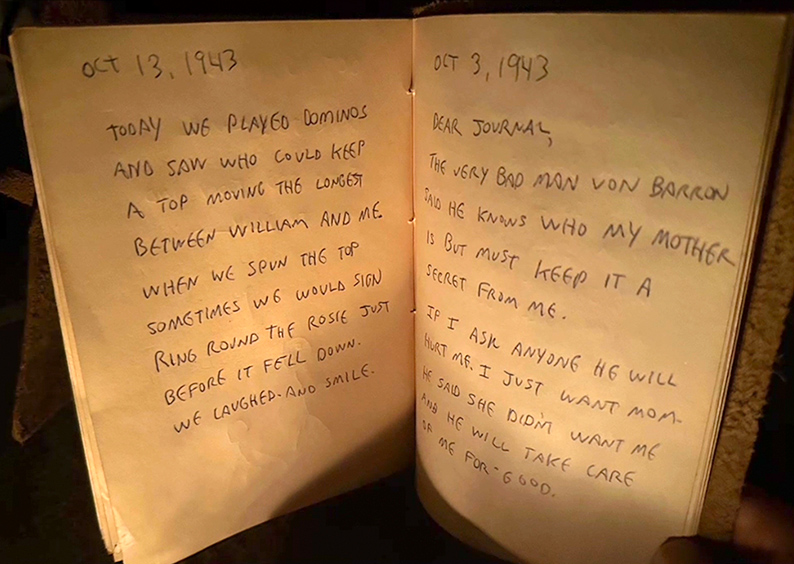 OCT 13, 1943
TODAY WE PLAYED DOMINOS
AND SAW WHO COULD KEEP
A TOP MOVING THE LONGEST
BETWEEN WILLIAM AND ME.
WHEN WE SPUN THE TOP
SOMETIMES WE WOULD SIGN
RING ROUND THE ROSIE JUST
BEFORE IT FELL DOWN.
WE LAUGHED-AND SMILE.
OCT 3, 1943
DEAR JOURNAL,
THE VERY BAD MAN VON BARRON
SAID HE KNOWS WHO MY MOTHER
IS BUT MUST KEEP IT A
SECRET FROM ME.
IF I ASK ANYONE HE WILL
HURT ME. I JUST WANT MOM.
HE SAID SHE DIDN'T WANT ME
AND HE WILL TAKE CARE
OF ME FOR-GOOD.